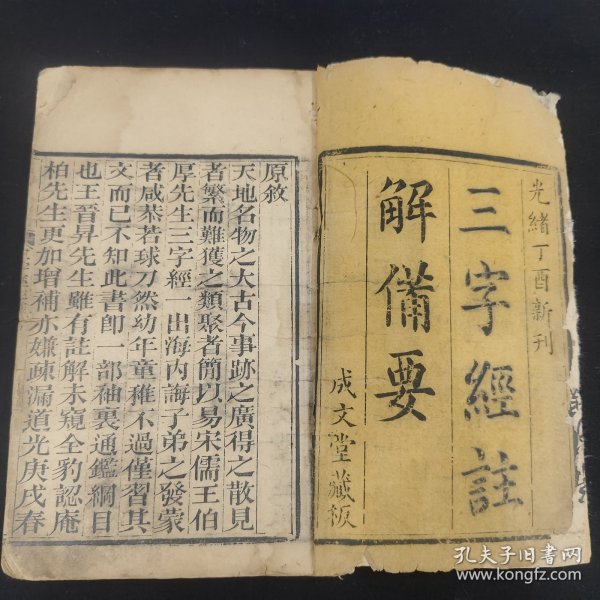 光緒丁酉新刊
三字經註
解備要
成文堂藏板
原敘
天地名物之大古今事跡之廣得之散見
者繁而難獲之類聚者簡以易宋儒王伯
厚先生三字經一出海內誨子弟之發蒙
者咸恭若球刀然幼年童稚不過僅習其
文而已不知此書卽一部袖裏通鑑綱目
也王晉昇先生雖有註解未窺全豹認庵
柏先生更加增補亦嫌疎漏道光庚戌春
孔夫子旧书网
www.kongfz.com